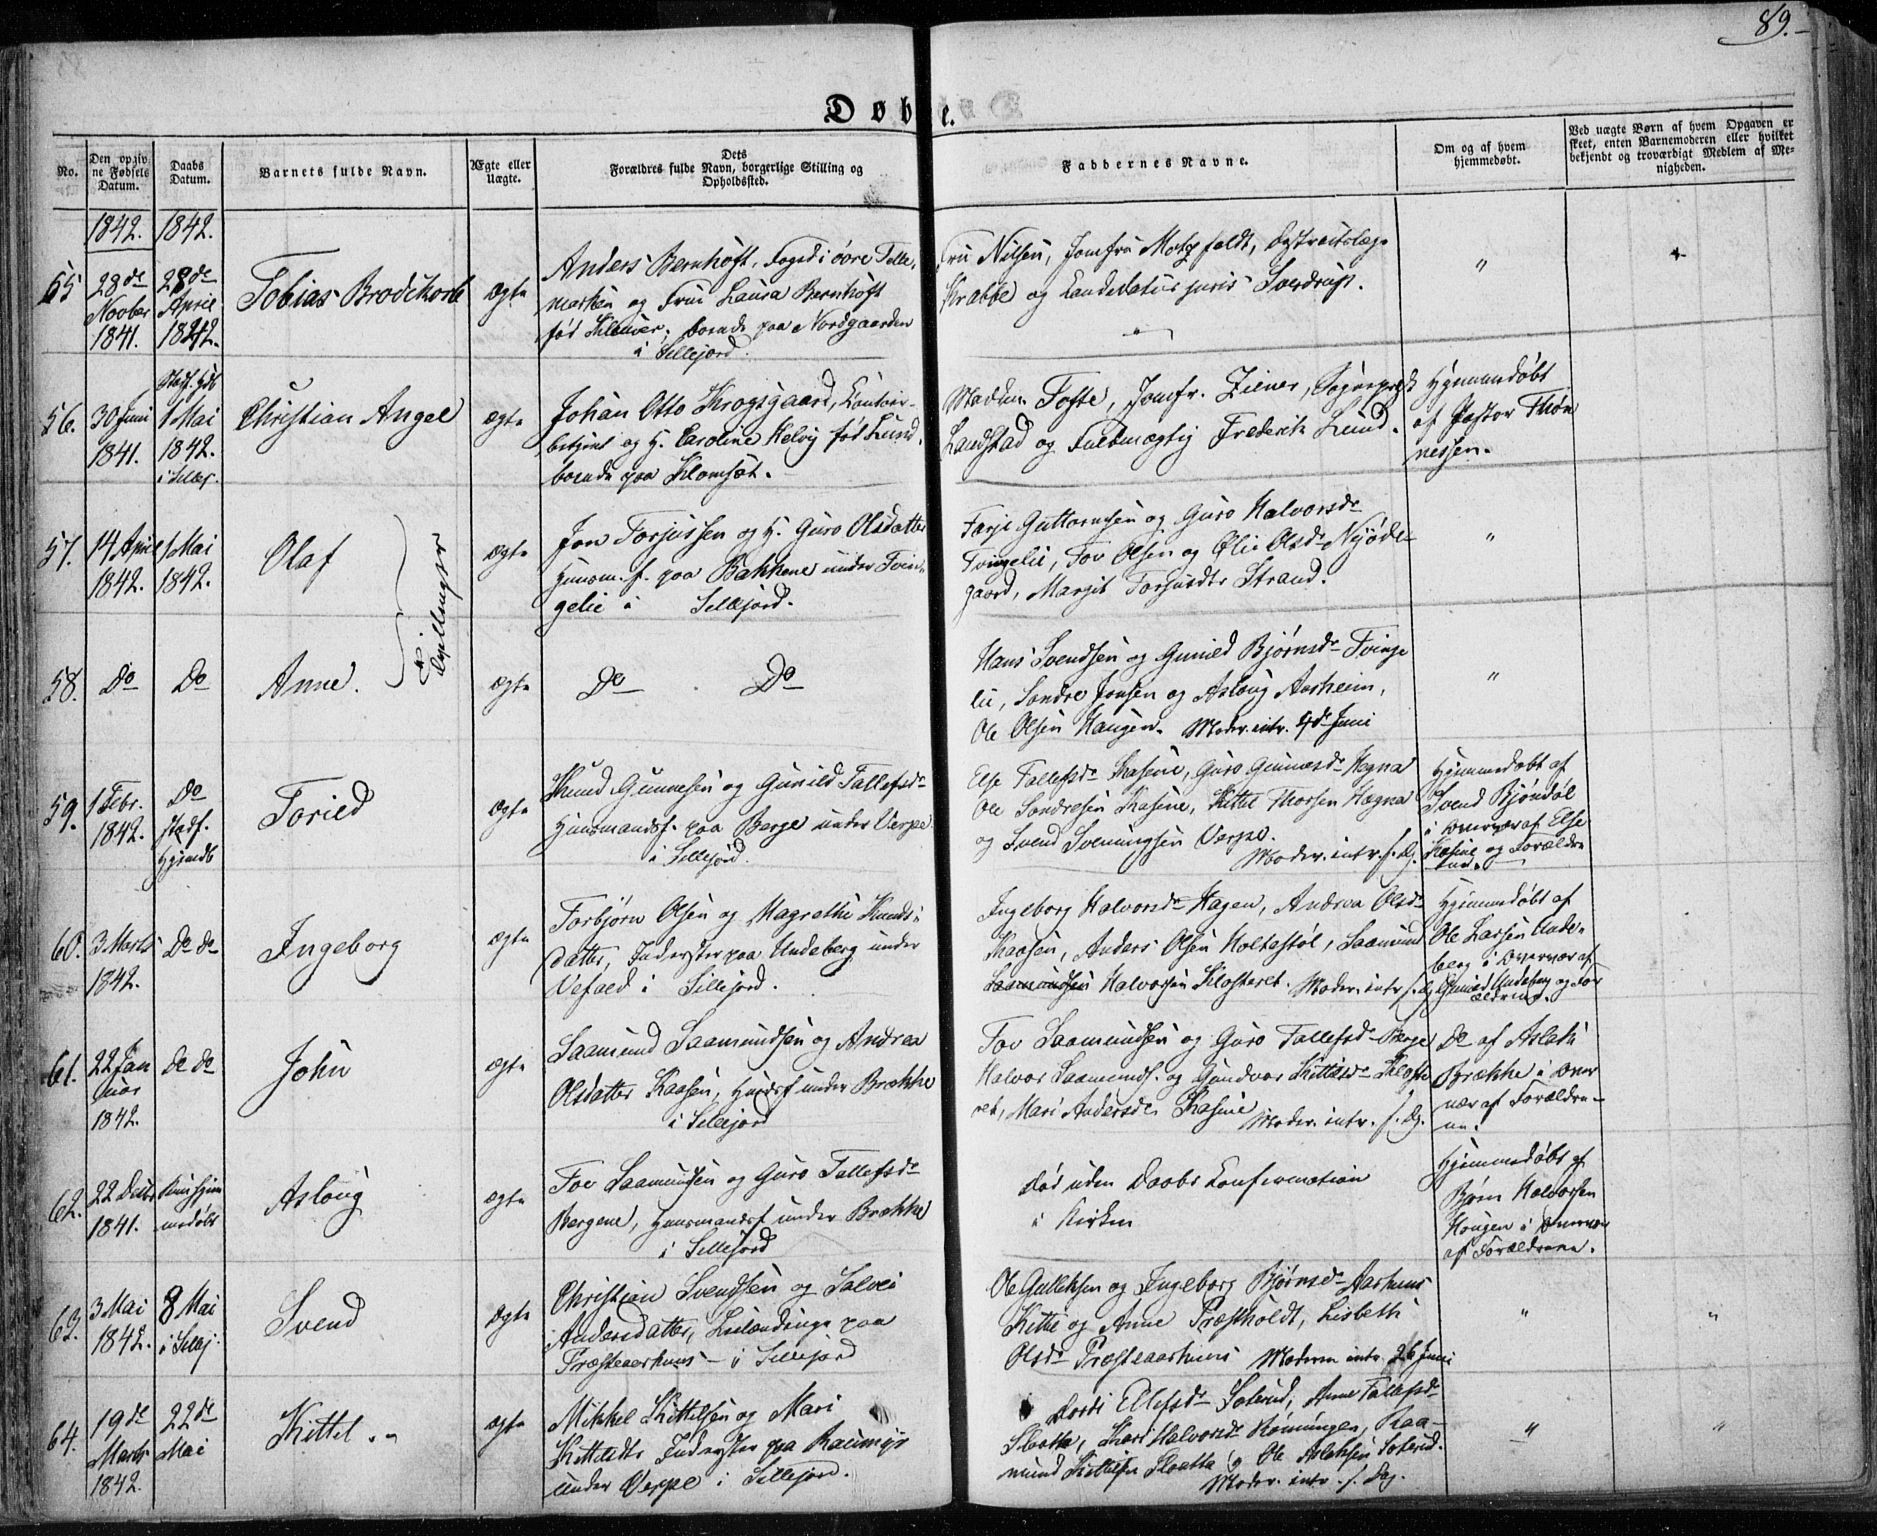 89.
Døbte.
No.
Den opgivne Fødsels Datum.
Daabs Datum.
Barnets fulde Navn.
Ægte eller Uægte.
Dets Forældres fulde Navn, borgerlige Stilling og Opholdssted.
Faddernes Navne.
Om og af hvem hjemmedøbt.
Ved uægte Børn af hvem Opgaven er skeet, enten Barnemoderen eller hvilket bekjendt og troværdigt Medlem af Menigheden.
1842. 1842.
55
28de Novbr 1841.
28de April 1842.
Tobias Brodtkorb
ægte
Anders Bernhoft, Foged i øvre Telle-
marken og Frue Laura Bernhoft
født Klouver, boende paa Nordgaarden
i Sillejord.
Fru Nilsen, Jomfru Motzfeldt, Distrectslæge
Krabbe og Candidatus juris Sverdrup.
"
56.
30 Juni 1841.
Stadf. Hdb 1 Mai 1842. i Sillej.
Christian Angel
ægte
Johan Otto Krogsgaard, Contoir-
betjent og H. Caroline Helvig født Lund,
boende paa Klomset.
Madm. Tofte, Jomfr. Ziener, Sogneprest
Landstad og Fuldmægtig Frederik Lund.
Hjemmedøbt
af Pastor Thøn
nessen.
57.
14 April 1842.
1 Mai 1842.
Olaf
Tvillinger
ægte
Jon Torjussen og H. Guro Olsdatter
Huusm. f. paa Bakkene under Tvin-
gelie i Sillejord.
Tarje Guttormsen og Guro Halvorsdr
Tvingelie, Tov Olsen og Ølie Olsdr Nyøde-
gaard, Margit Torjusdtr Strand.
"
58.
Do
Do
Anne.
ægte
Do Do
Hans Svendsen og Gunild Bjørnsdr Tvinge
lie, Sondre Jonsen og Asloug Aarheim,
Ole Olsen Haugen. Moder. intr. 4de Juni
"
59.
1 Febr. 1842.
Do stadf. Hjemdb
Toried
ægte
Knud Gunnesen og Gunild Tallefsdr
Huusmandsf. paa Berge under Verpe
i Sillejord.
Else Tallefsdr Kasine, Guro Gunnesdr Hegna
Ole Sondresen Kasine, Kittel Thorsen Hægna
og Svend Sveningsen Verpe.
Moder. intr. s. Dg.
Hjemmedøbt af
Svend Bjøndøl
i Overvær af Else
Kasine og Forældre
ne.
60.
3 Marts 1842.
Do do
Ingeborg
ægte
Torbjørn Olsen og Magrethe Knuds-
datter, Inderster paa Undeberg under
Vefald i Sillejord.
Ingeborg Halvorsdr Hagen, Andrea Olsdr
Kaasen, Anders Olsen Holtestøl, Saamund
Saamundsen Halvorsen Klosteret. Moder. intr s. Dg.
Hjemmedøbt af
Ole Larsen Unde-
berg i Overvær af
Gunild Undeberg og For
ældrene.
61.
22 Januar 1842.
Do do
John
ægte
Saamund Saamundsen og Andrea
Olsdatter Kaasen, Huusf under Brække
i Sillejord
Tov Saamundsen og Guro Tallefsdr Berge
Halvor Saamunds. og Gundvor Kittilsdr Kloste
ret, Mari Andersdr Kasine Moder. intr. s. Dg.
Do af Aslak
Brække i Over
vær af Forældre-
ne.
62.
22 Decbr 1841.
Kun hjemmedøbt
Aslaug
ægte
Tov Saamundsen og Guro Tallefsdr
Bergene, Huusmandsf under Brække
i Sillejord
Død uden Daabs Confirmation
i Kirken
Hjemmedøbt af
Bjørn Halvorsen
Haugen i Overvær
af Forældrene.
63.
3 Mai 1842.
8 Mai i Sillej.
Svend
ægte
Christian Svendsen og Salvei
Andersdatter, Leilændinge paa
Præsteaarhuus i Sillejord
Ole Gulleksen og Ingeborg Bjørnsdr Aarhuus
Kittil og Anne Præstholdt, Lisbeth
Olsdr Præsteaarhuus Moderen intr. 26 Juni
"
"
64.
19de Marts 1842.
22de Mai
Kittel.
ægte
Mikkel Kittelsen og Mari
Kittelsdtr Inderster paa Raumyr
under Verpe i Sillejord.
Dordi Ellefsdr Soterud, Anne Tallefsdr
Sloatta, Kari Halvorsdr Rønningen, Raa-
mund Kittelsen Sloatta og Ole Aslaksen Soterud.
Moder. intr. s. Dag.
"
"